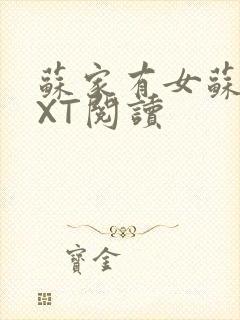 蘇家有女蘇
XT閱讀
寶金